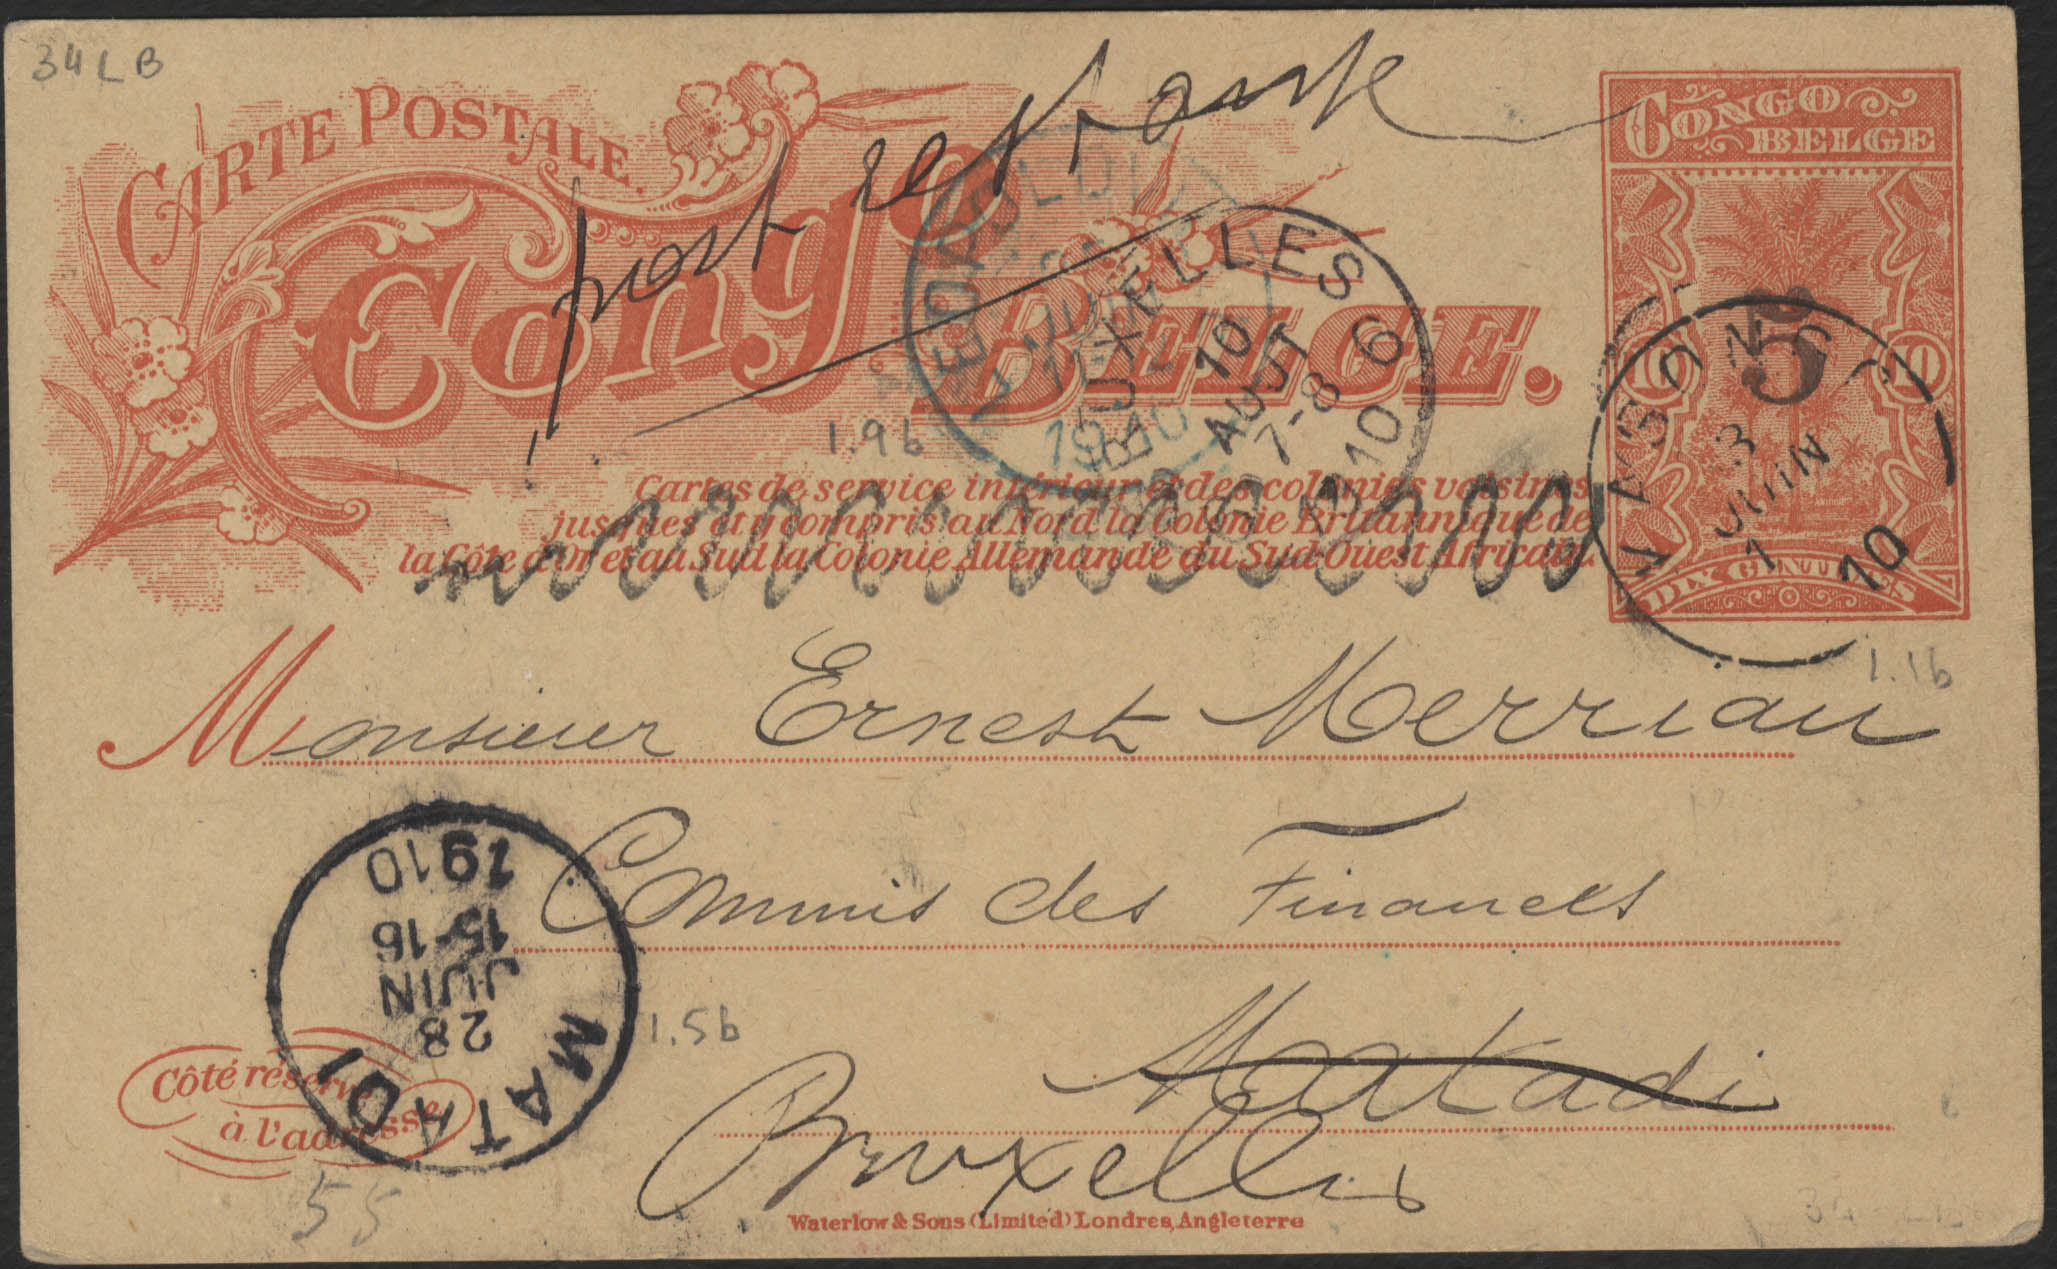 34LB
CARTE POSTALE.
Congo
BELGE.
CONGO
BELGE
10
10
5
DIX CENTIMES
LEOPOLDVILLE
JUIN
1910
BRUXELLES 6
10
AOUT
7-8
1910
3
JUIN
10
1.9b
Cartes de service intérieur et des colonies voisines
jusques et y compris au Nord la Colonie Britannique de
la Côte d'Or et au Sud la Colonie Allemande du Sud-Ouest Africain.
1.1b
Monsieur Ernest Merriau
Commis des Finances
Matadi
Bruxelles
MATADI
28
JUIN
15-16
1910
1.5b
Côté réservé
à l'adresse
55
Waterlow & Sons (Limited) Londres, Angleterre